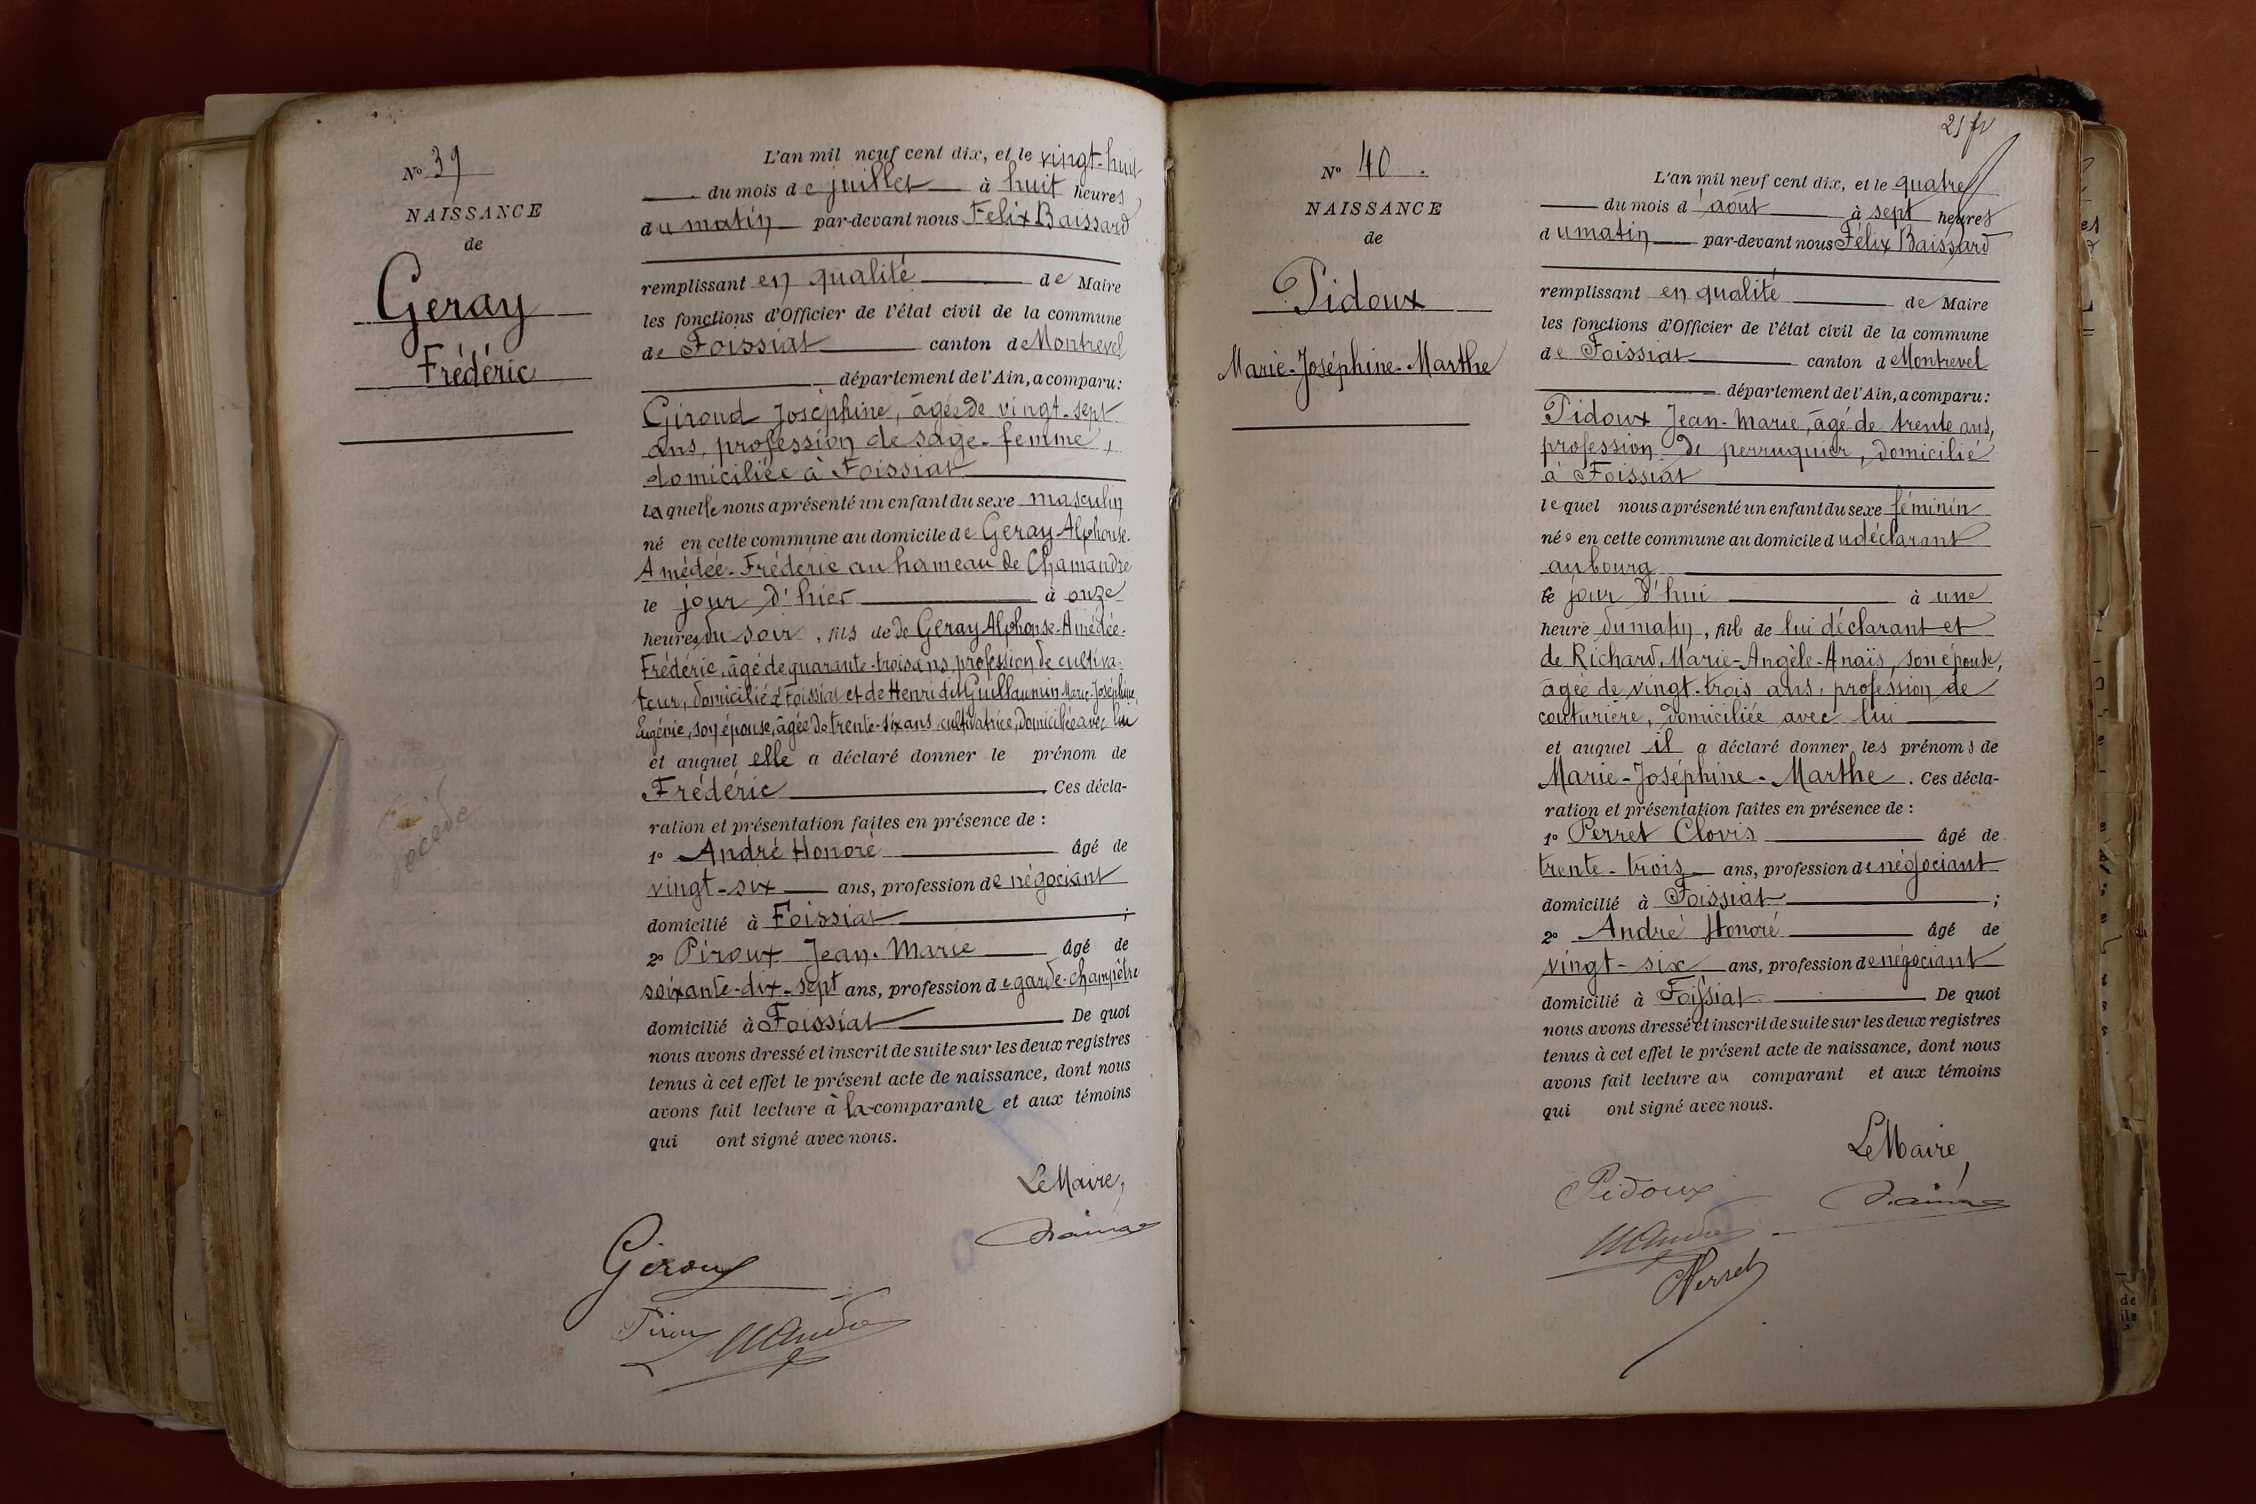 N° 39
NAISSANCE
de
Geray
Frédéric
L'an mil neuf cent dix, et le vingt-huit
du mois de juillet à huit heures
du matin par-devant nous Félix Baissard
remplissant en qualité de Maire
les fonctions d'Officier de l'état civil de la commune
de Foissiat canton de Montrevel
département de l'Ain, a comparu:
Giroud Joséphine, âgée de vingt-sept
ans, profession de sage-femme,
domiciliée à Foissiat
laquelle nous a présenté un enfant du sexe masculin
né en cette commune au domicile de Geray Alphonse-
Amédée-Frédéric au hameau de Chamandre
le jour d'hier à onze
heures du soir, fils de de Geray Alphonse-Amédée-
Frédéric, âgé de quarante-trois ans, profession de cultiva-
teur, domicilié à Foissiat et de Henri dit Guillaumin Marie-Joséphine,
Eugénie, son épouse, âgée de trente-six ans cultivatrice, domiciliée avec lui
et auquel elle a déclaré donner le prénom de
Frédéric. Ces décla-
ration et présentation faites en présence de :
1° André Honoré âgé de
vingt-six ans, profession de négociant
domicilié à Foissiat ;
2° Piroux Jean-Marie âgé de
soixante-dix-sept ans, profession de garde-champêtre
domicilié à Foissiat De quoi
nous avons dressé et inscrit de suite sur les deux registres
tenus à cet effet le présent acte de naissance, dont nous
avons fait lecture à la comparante et aux témoins
qui ont signé avec nous.
Le Maire,
Giroud
Piroux
HAndré
N° 40.
NAISSANCE
de
Pidoux
Marie-Joséphine-Marthe
L'an mil neuf cent dix, et le quatre
du mois d'août à sept heures
du matin par-devant nous Félix Baissard
remplissant en qualité de Maire
les fonctions d'Officier de l'état civil de la commune
de Foissiat canton de Montrevel
département de l'Ain, a comparu:
Pidoux Jean-Marie, âgé de trente ans,
profession de perruquier, domicilié
à Foissiat
lequel nous a présenté un enfant du sexe féminin
née en cette commune au domicile du déclarant
au bourg
le jour d'hui à une
heure du matin, fille de lui déclarant et
de Richard, Marie-Angèle-Anaïs, son épouse,
âgée de vingt-trois ans, profession de
couturière, domiciliée avec lui
et auquel il a déclaré donner les prénoms de
Marie-Joséphine-Marthe. Ces décla-
ration et présentation faites en présence de :
1° Perret Clovis âgé de
trente-trois ans, profession de négociant
domicilié à Foissiat ;
2° André Honoré âgé de
vingt-six ans, profession de négociant
domicilié à Foissiat De quoi
nous avons dressé et inscrit de suite sur les deux registres
tenus à cet effet le présent acte de naissance, dont nous
avons fait lecture au comparant et aux témoins
qui ont signé avec nous.
Le Maire,
Pidoux
HAndré
CPerret